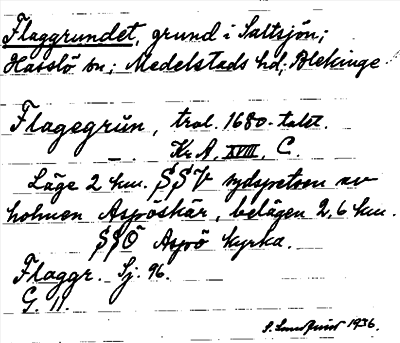 Flaggrundet, grund i Saltsjön;
Hasslö sn; Medelstads hd; Blekinge
Flagegrůn, trol. 1680-talet.
Kr. A, XVIII, C.
Läge 2 km. SSV sydspetsen av
holmen Aspöskär, belägen 2,6 km.
SSÖ Aspö kyrka.
Flaggr. Sj. 96.
G. 11.
1936.